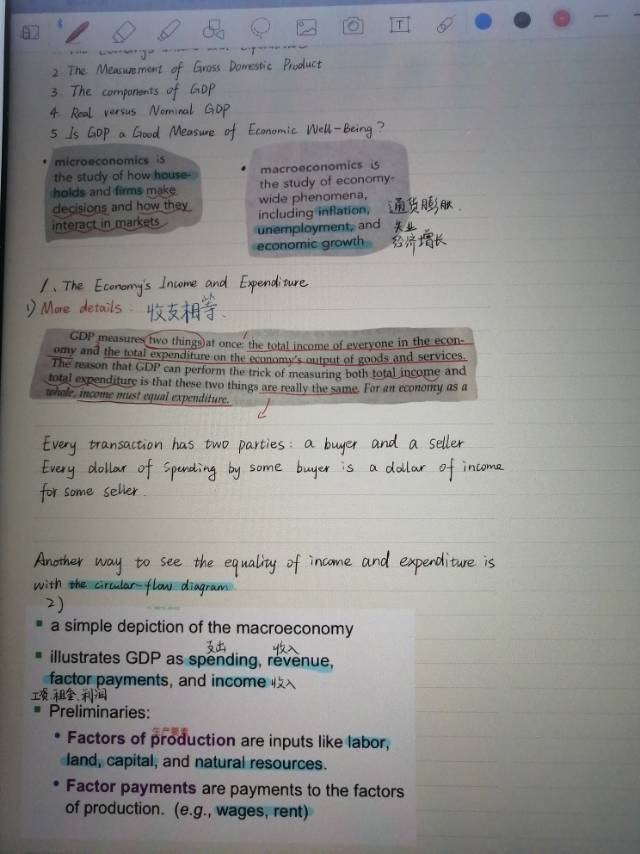 The Economy's
2. The Measurement of Gross Domestic Product
3. The components of GDP
4. Real versus Nominal GDP
5. Is GDP a Good Measure of Economic Well-Being?
• microeconomics is
the study of how house-
holds and firms make
decisions and how they
interact in markets
• macroeconomics is
the study of economy-
wide phenomena,
including inflation, 通货膨胀.
unemployment, and 失业
economic growth 经济增长
1、The Economy's Income and Expenditure
1) More details: 收支相等、
GDP measures two things at once: the total income of everyone in the econ-
omy and the total expenditure on the economy's output of goods and services.
The reason that GDP can perform the trick of measuring both total income and
total expenditure is that these two things are really the same. For an economy as a
whole, income must equal expenditure.
Every transaction has two parties: a buyer and a seller
Every dollar of spending by some buyer is a dollar of income
for some seller.
Another way to see the equality of income and expenditure is
with the circular-flow diagram
2)
▪ a simple depiction of the macroeconomy
支出 收入
▪ illustrates GDP as spending, revenue,
factor payments, and income 收入
工资.租金.利润
▪ Preliminaries:
生产要素
• Factors of production are inputs like labor,
land, capital, and natural resources.
• Factor payments are payments to the factors
of production. (e.g., wages, rent)